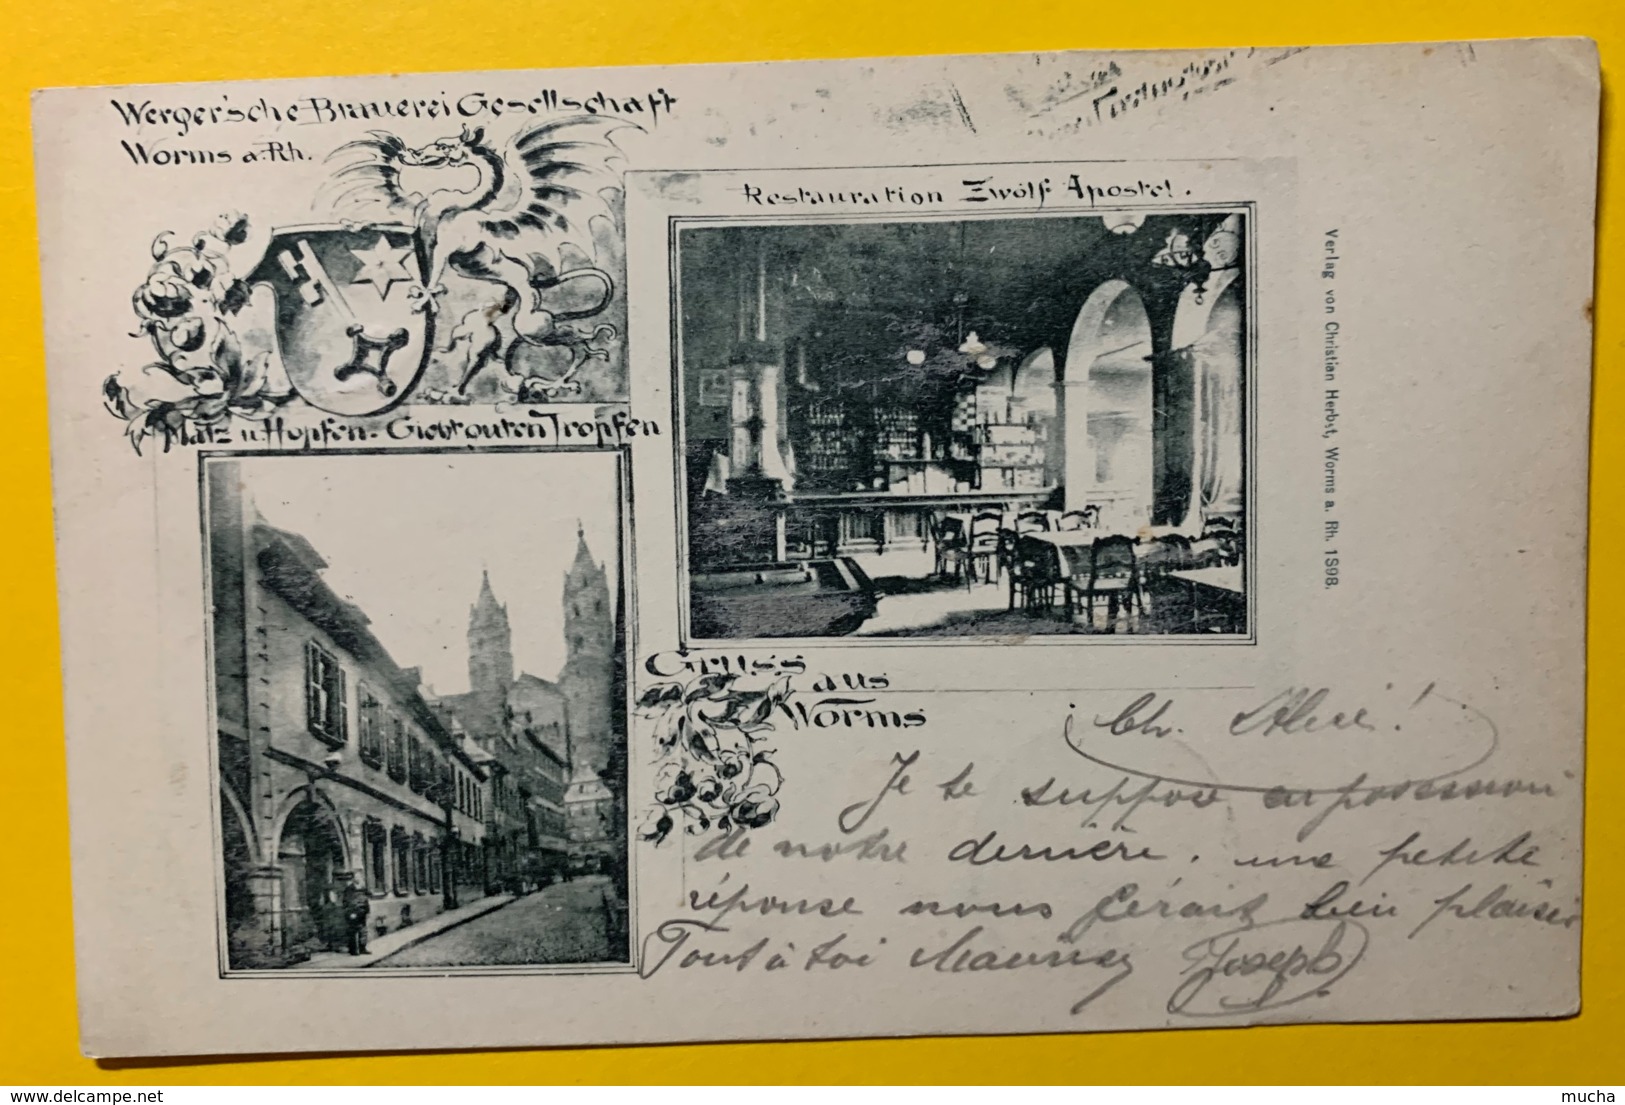 Werger'sche Brauerei Gesellschaft
Worms a. Rh.
Restauration Zwölf Apostel.
Verlag von Christian Herbst, Worms a. Rh. 1898.
Malz u. Hopfen - Giebt guten Tropfen
Gruss
aus
Worms
Ch. Alice!
Je te suppose en possession
de notre dernière. une petite
réponse nous ferait bien plaisir
Tout à toi Joseph
delcampe.net
mucha